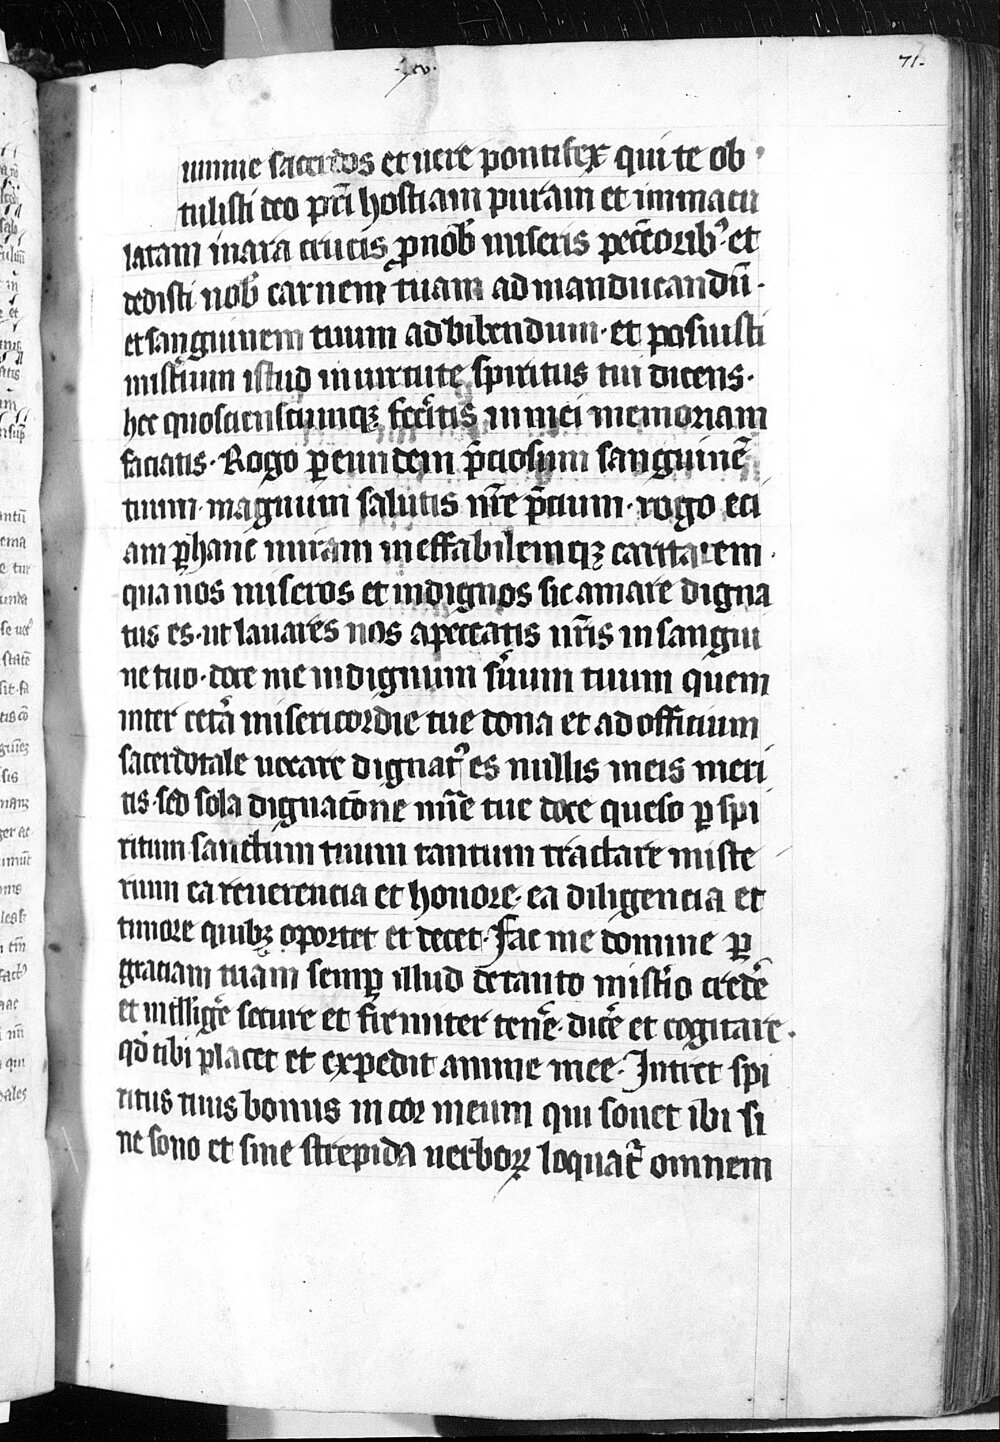 ·xv·
71.
umme sacerdos et uere pontifex qui te ob
tulisti deo pr̄i hostiam puram et immacu
latam in ara crucis ꝓ nob̄ miseris pecc̄orib⁹ et
dedisti nob̄ carnem tuam ad manducandū·
et sanguinem tuum ad bibendum· et posuisti
mist̄ium istud in uirtute spiritus tui dicens·
hec quocienscumqꝫ fec̄itis in mei memoriam
faciatis· Rogo ꝑ eundem p̄ciosum sanguinē
tuum· magnum salutis nr̄e p̄cium· rogo eci
am ꝑ hanc miram ineffabilemqꝫ caritatem·
qua nos miseros et indignos sic amare digna
tus es· ut lauares nos a peccatis nr̄is in sangui
ne tuo· doce me indignum s̄uum tuum quem
inter cet̄a misericordie tue dona et ad officium
sacerdotale uocare dignat⁹ es nullis meis meri
tis· sed sola dignatōne mīe tue doce queso ꝑ spi
ritum sanctum tuum tantum tractare miste
rium ea reuerencia et honore· ea diligencia et
timore quibꝫ oportet et decet· Fac me domine ꝑ
graciam tuam semꝑ illud de tanto mist̄io credē
et intlliḡe secure et firmiter tenē· dic̄e et cogitare·
qd̄ tibi placet et expedit anime mee· Intret spi
ritus tuus bonus in cor meum qui sonet ibi si
ne sono et sine strepida uerboꝝ loquat̄ omnem